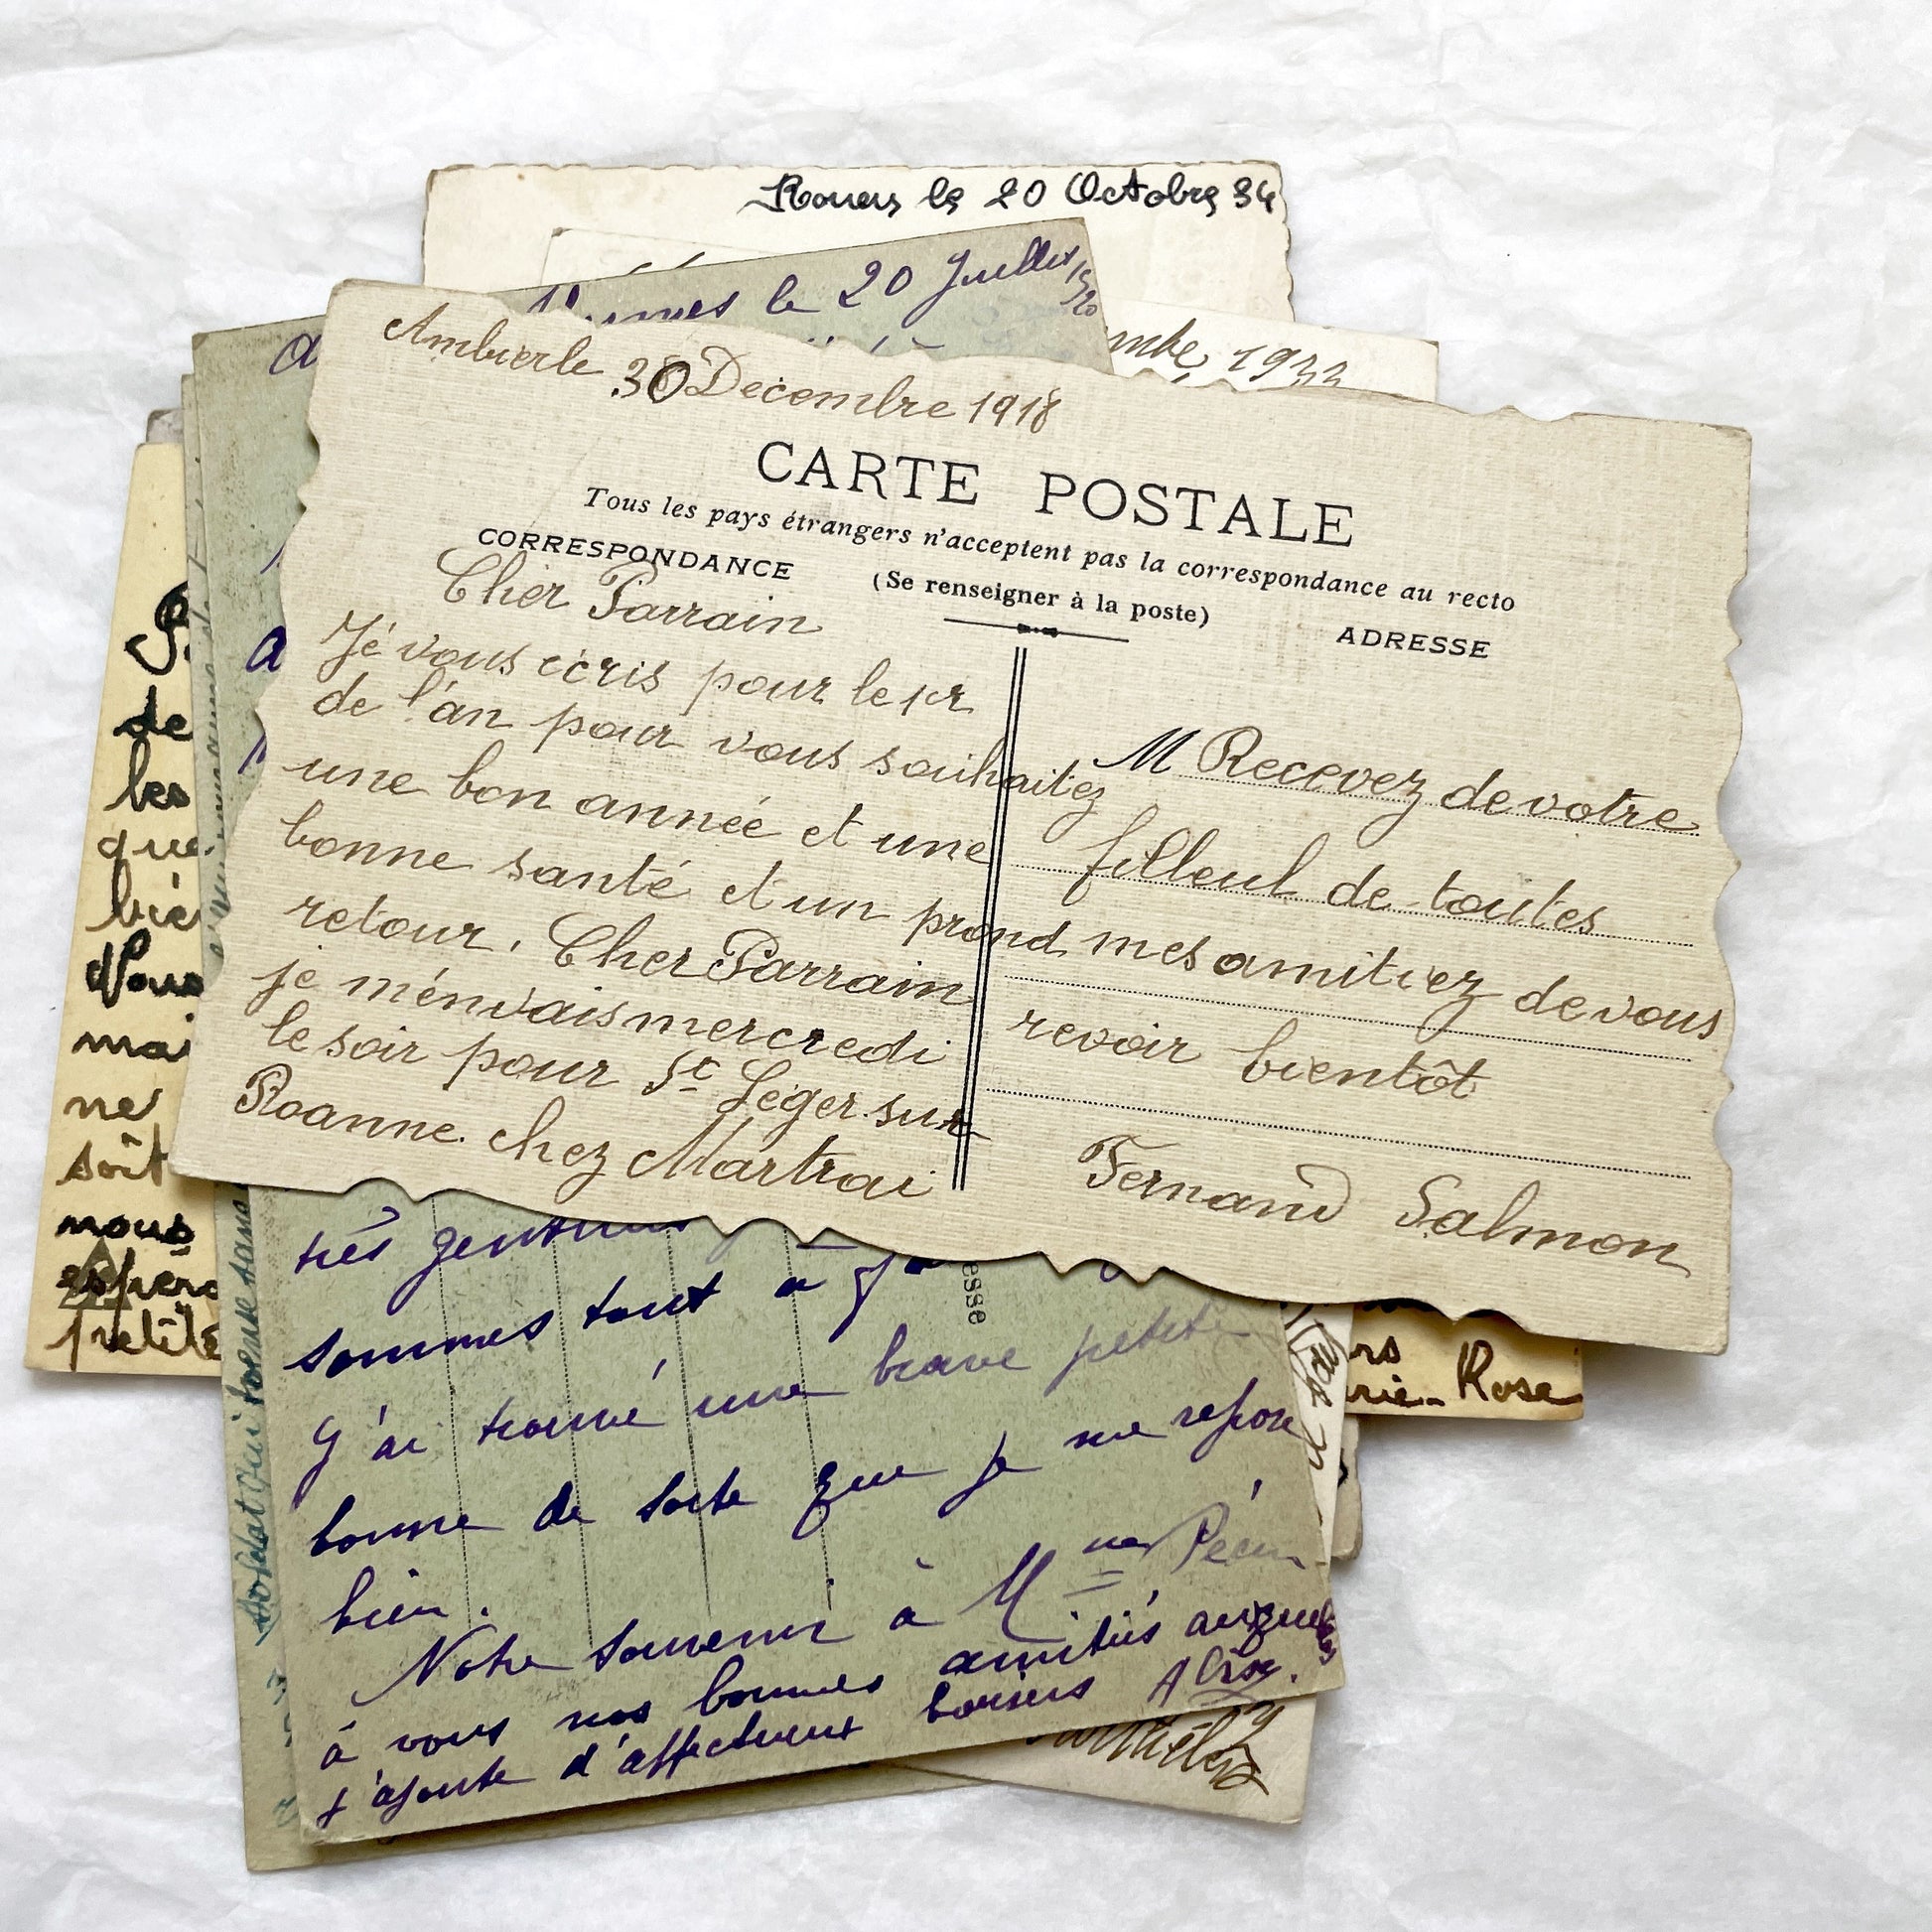 Rouen le 20 Octobre 34
le 20 Juillet 1920
1933
Ambierle 30 Decembre 1918
CARTE POSTALE
Tous les pays étrangers n'acceptent pas la correspondance au recto
(Se renseigner à la poste)
CORRESPONDANCE
ADRESSE
Cher Parrain
Je vous ecris pour le 1er
de l'an pour vous souhaitez
une bon année et une
bonne santé et un prond
retour. Cher Parrain
je m'énvais mercredi
le soir pour St Leger sur
Roanne chez Martrai
M Recevez de votre
filleul de toutes
mes amitiez de vous
revoir bientôt
Fernand Salmon
de
les
que
Nous
mai
ne
soit
nous
espero
petite
esse
très
sommes tout à
J'ai trouvé une brave petite
bonne de sorte que je me repose
bien.
Notre souvenir à Mme
à vous nos bonnes amitiés auxquelles
j'ajoute d'affectueux baisers Alice.
rs
rie-Rose